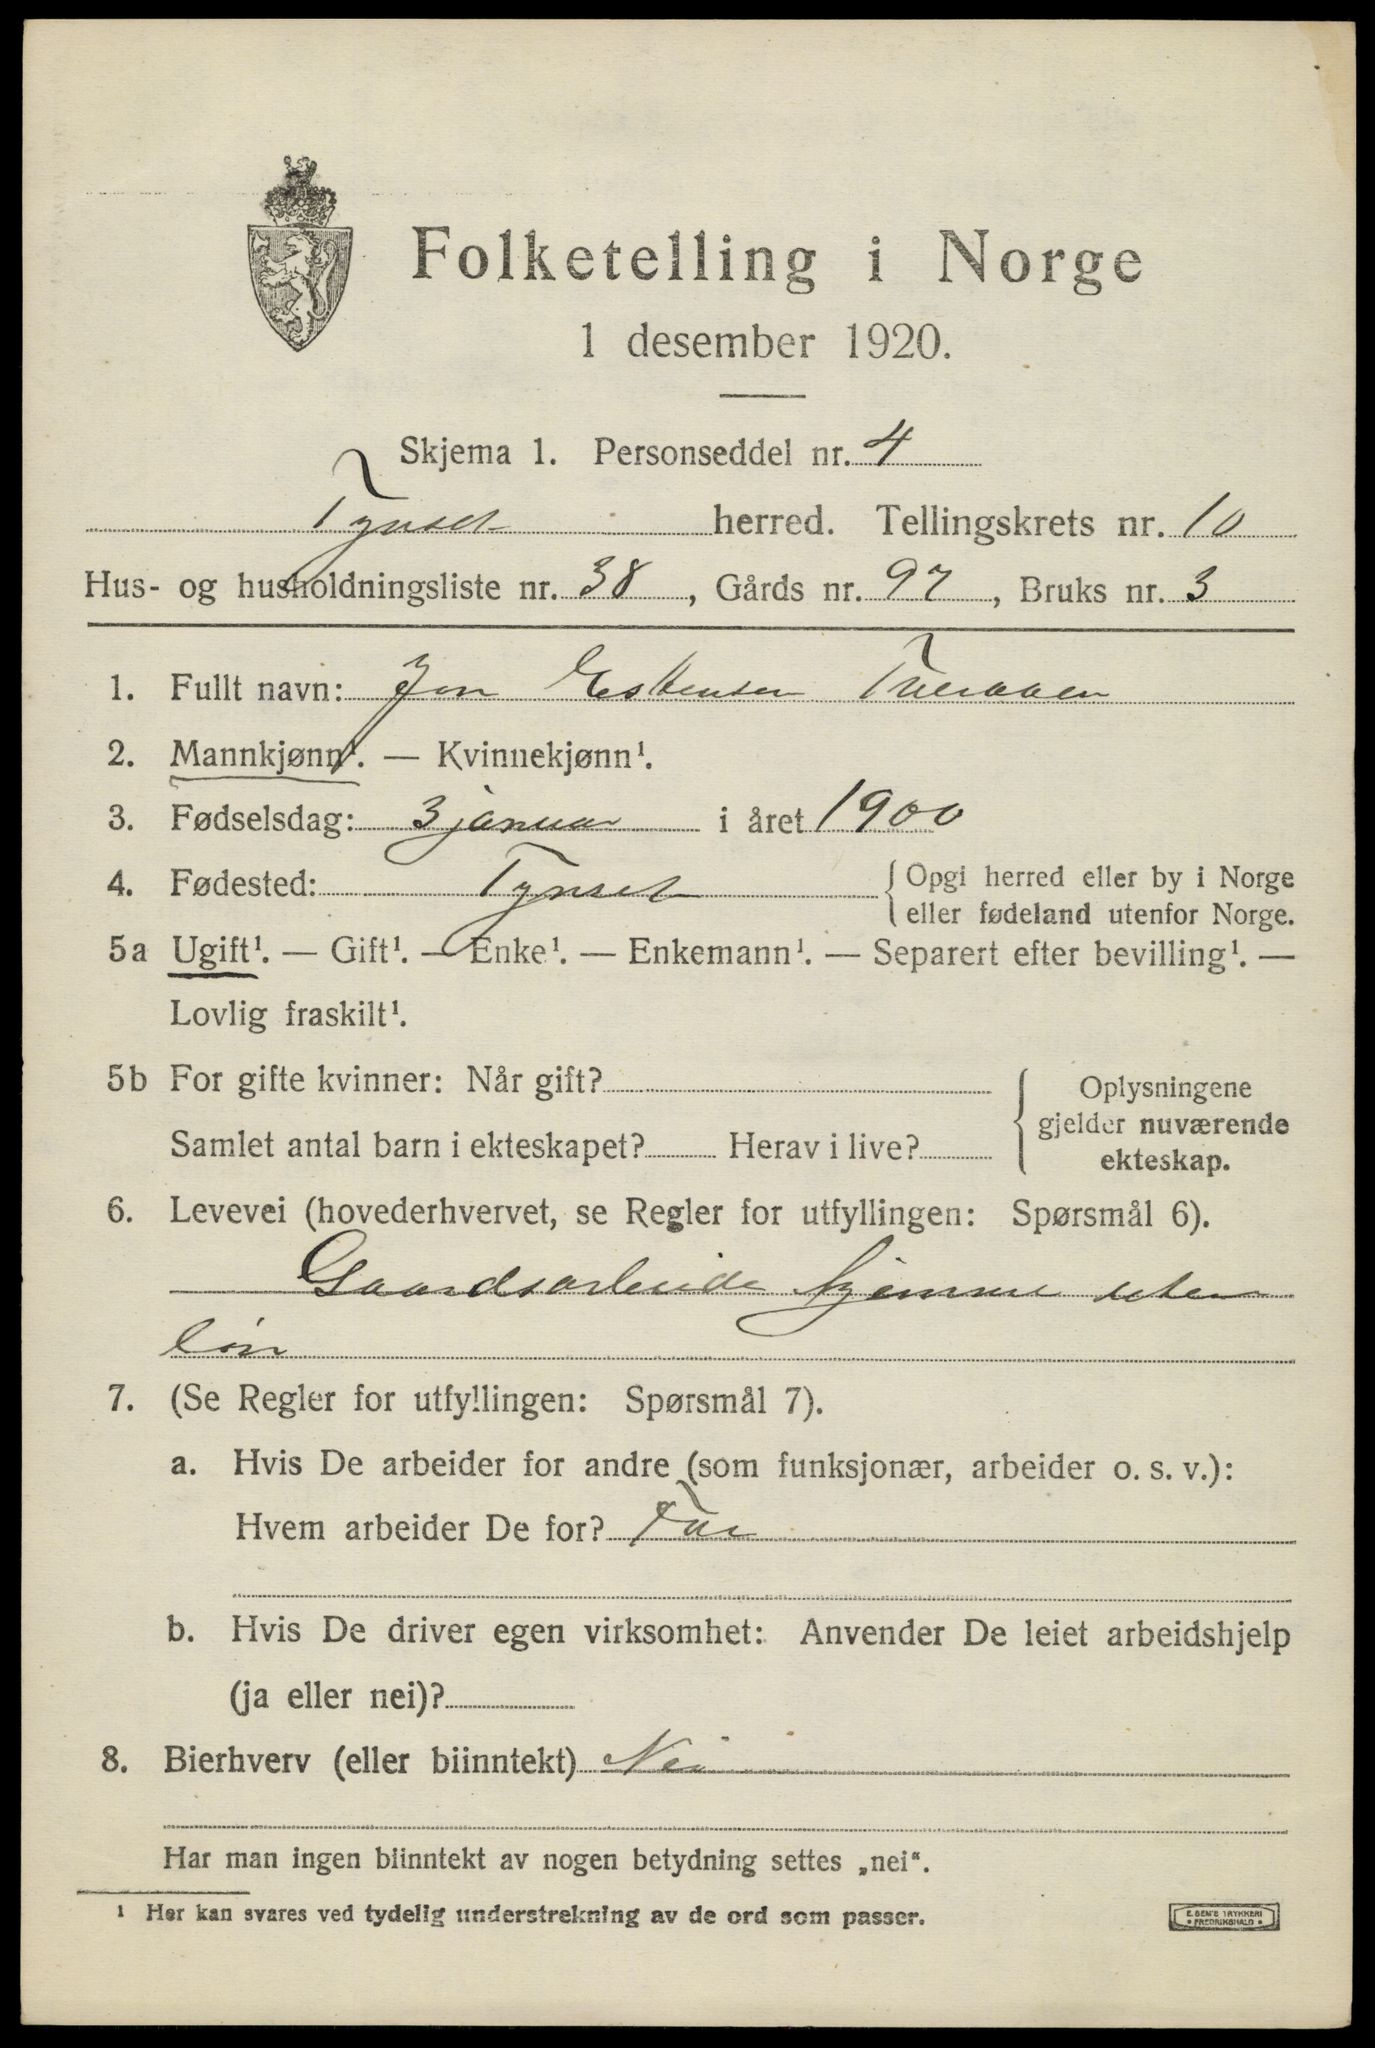 Folketelling i Norge
1 desember 1920.
Skjema 1. Personseddel nr. 4
Tynset herred. Tellingskrets nr. 10
Hus- og husholdningsliste nr. 38, Gårds nr. 97, Bruks nr. 3
1. Fullt navn: Jon Estensen
2. Mannkjønn¹. — Kvinnekjønn¹.
3. Fødselsdag: 3 januar i året 1900
4. Fødested: Tynset { Opgi herred eller by i Norge
eller fødeland utenfor Norge.
5a Ugift¹. — Gift¹. — Enke¹. — Enkemann¹. — Separert efter bevilling¹. —
Lovlig fraskilt¹.
5b For gifte kvinner: Når gift?
Samlet antal barn i ekteskapet? Herav i live?
{ Oplysningene
gjelder nuværende
ekteskap.
6. Levevei (hovederhvervet, se Regler for utfyllingen: Spørsmål 6).
Gaardsarbeide hjemme uten
løn
7. (Se Regler for utfyllingen: Spørsmål 7).
a. Hvis De arbeider for andre (som funksjonær, arbeider o. s. v.):
Hvem arbeider De for? Far
b. Hvis De driver egen virksomhet: Anvender De leiet arbeidshjelp
(ja eller nei)?
8. Bierhverv (eller biinntekt) Nei
Har man ingen biinntekt av nogen betydning settes „nei“.
¹ Her kan svares ved tydelig understrekning av de ord som passer.
E. SEM'S TRYKKERI
• FREDRIKSHALD •